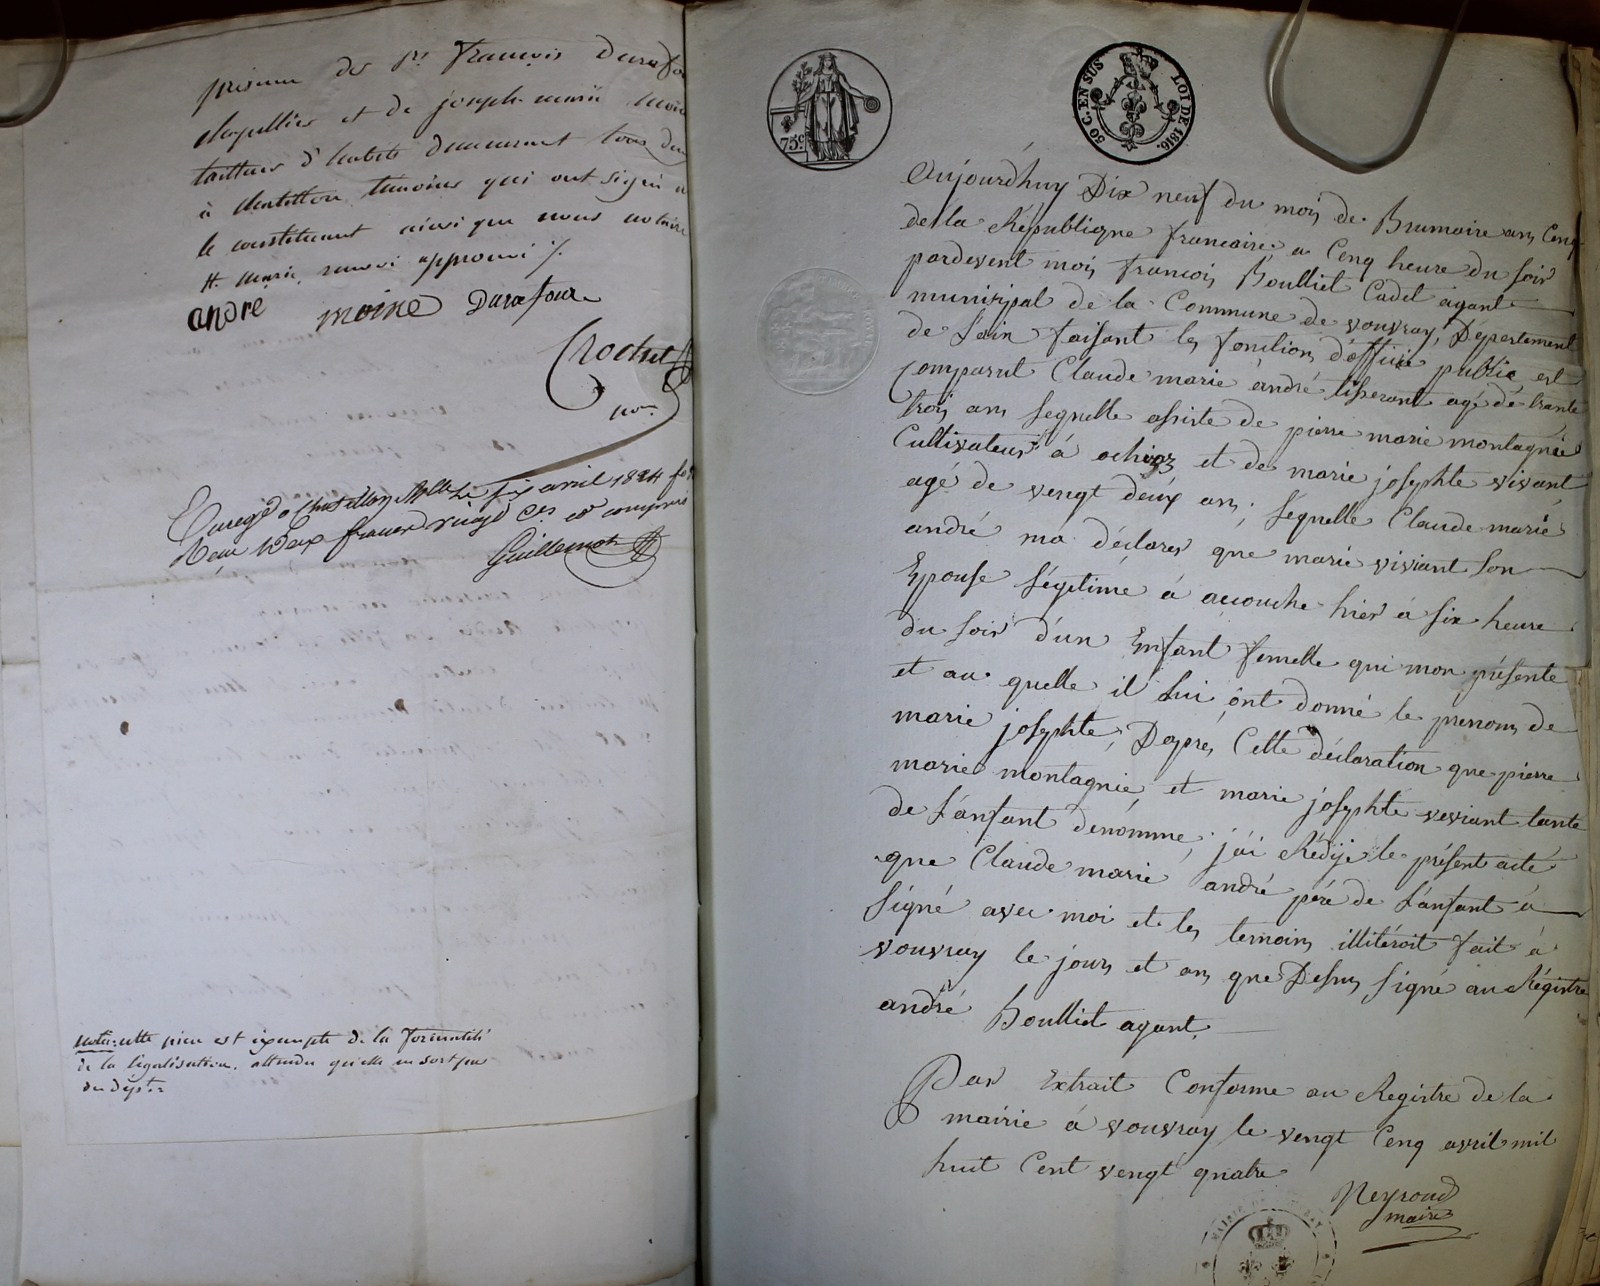 présence des Srs françois Durafou
chapellier et de joseph marie moin
tailleur d'habits demeurant tous deux
à chatillon temoins qui ont signé a
le constituant ainsi que nous notaire
marie, renvoi approuvé /.
andré moine Durafour
Crochet
nore
Enregé à Chatillon le six avril 1824 fo
Reçu deux francs vingt ces compris
Guillemot
nota: cette piece est exempte de la formalité
de la légalisation, attendu qu'elle ne sort pas
du dépt
75c
50 C. EN SUS LOI DE 1816.
Aujourdhuy Dix neuf du mois de Brumaire an Cenq
de la République francaise, a Cenq heure du soir
pardevent mois francois Boulliet Cadet agant
munisipal de la Commune de vouvray, Département
de L'ain faisant les fonction d'officié public, est
comparut Claude marie andré tisserant agé de trante
trois ans Lequelle assiste de pierre marie montagnié
Cultivateur à ochiaz et de marie josephte vivant
agé de vengt deux ans; Lequelle Claude marie
andré ma déclarer que marie viviant Son
Epouse Légetimé à acouche hier à six heure
du soir d'un Enfant femelle qui mon présente
et au quelle il Lui ônt donné le prenom de
marie josephte, Dapres Cette déclaration que pierre
marie montagnié, et marie josephte veviant tante
de L'anfant dénommé, j'ai Rédijé le présent acte
que Claude marie andré père de L'anfant à
signé avec moi et les temoins illitéroit fait à
vouvray le jours et an que Dessus signé au Régistre
andré Boulliet agant.
Par Extrait Conforme au Registre de la
mairie à vouvray le vengt Cenq avril mil
huit Cent vengt quatre
Neyroud
maire